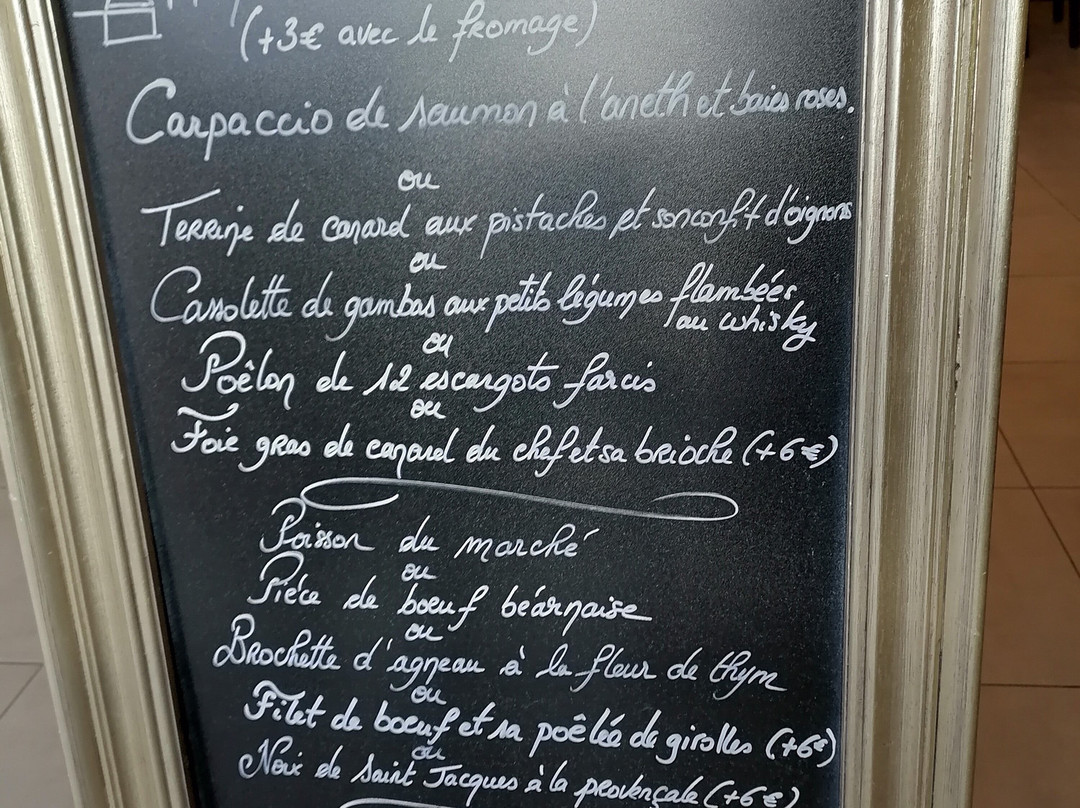 (+3€ avec le fromage)
Carpaccio de saumon à l'aneth et baies roses.
ou
Terrine de canard aux pistaches et son confit d'oignons
ou
Cassolette de gambas aux petits légumes flambées
au whisky
ou
Poêlon de 12 escargots farcis
ou
Foie gras de canard du chef et sa brioche (+6€)
Poisson du marché
ou
Pièce de boeuf béarnaise
ou
Brochette d'agneau à la fleur de thym
ou
Filet de boeuf et sa poêlée de girolles (+6€)
ou
Noix de Saint Jacques à la provençale (+6€)